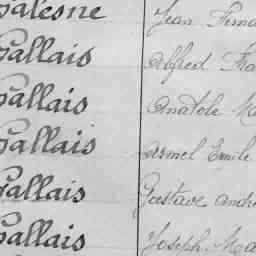 Galesne Jean Ferna
Gallais Alfred Fra
Gallais Anatole Ma
Gallais Armel Emile
Gallais Gustave André
Gallais Joseph Ma